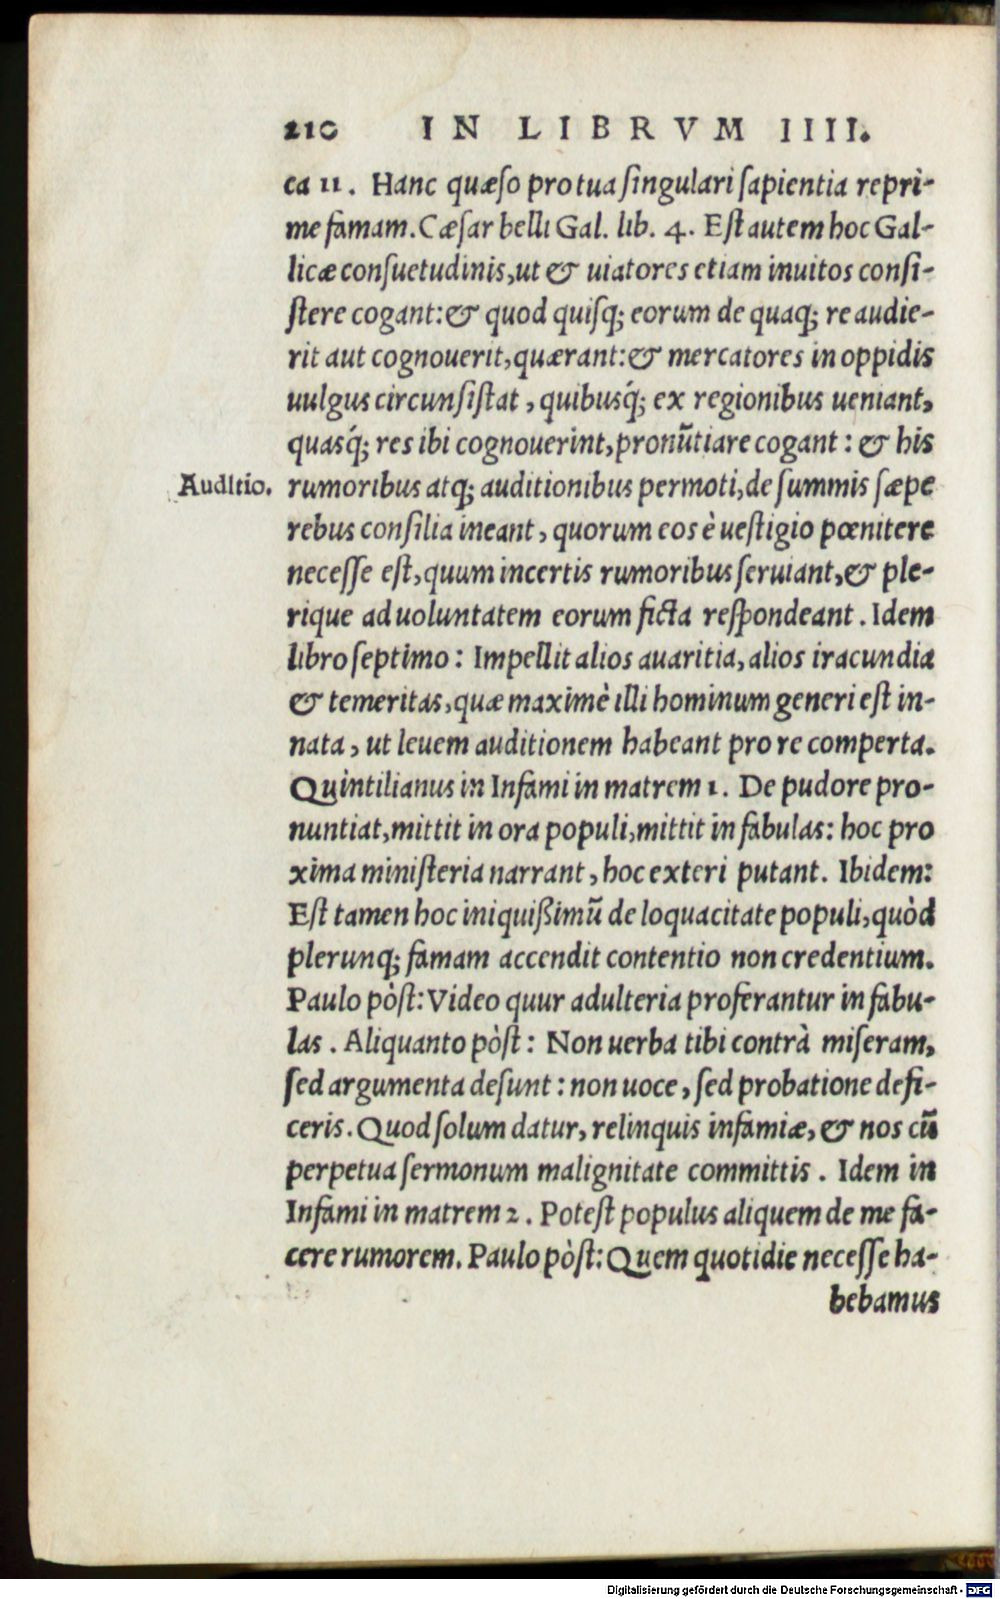 210 IN LIBRVM IIII.
ca 11. Hanc quæso pro tua singulari sapientia repri-
me famam. Cæsar belli Gal. lib. 4. Est autem hoc Gal-
licæ consuetudinis, ut & uiatores etiam inuitos consi-
stere cogant: & quod quisq; eorum de quaq; re audie-
rit aut cognouerit, quærant: & mercatores in oppidis
uulgus circunsistat, quibusq́; ex regionibus ueniant,
quasq́; res ibi cognouerint, pronũtiare cogant: & his
Auditio.
rumoribus atq; auditionibus permoti, de summis sæpe
rebus consilia ineant, quorum eos è uestigio pœnitere
necesse est, quum incertis rumoribus seruiant, & ple-
rique ad uoluntatem eorum ficta respondeant. Idem
libro septimo: Impellit alios auaritia, alios iracundia
& temeritas, quæ maximè illi hominum generi est in-
nata, ut leuem auditionem habeant pro re comperta.
Quintilianus in Infami in matrem 1. De pudore pro-
nuntiat, mittit in ora populi, mittit in fabulas: hoc pro
xima ministeria narrant, hoc exteri putant. Ibidem:
Est tamen hoc iniquißimũ de loquacitate populi, quòd
plerunq; famam accendit contentio non credentium.
Paulo pòst: Video quur adulteria proferantur in fabu-
las. Aliquanto pòst: Non uerba tibi contrà miseram,
sed argumenta desunt: non uoce, sed probatione defi-
ceris. Quod solum datur, relinquis infamiæ, & nos cũ
perpetua sermonum malignitate committis. Idem in
Infami in matrem 2. Potest populus aliquem de me fa-
cere rumorem. Paulo pòst: Quem quotidie necesse ha-
bebamus
Digitalisierung gefördert durch die Deutsche Forschungsgemeinschaft - DFG